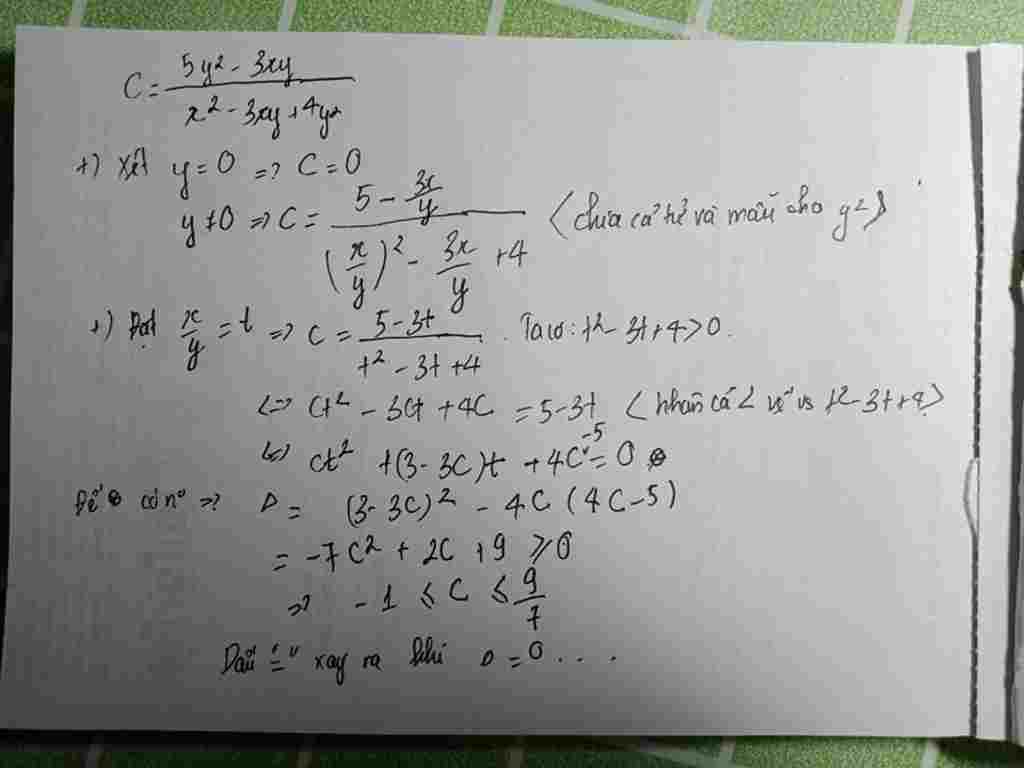 C = \frac{5y^2 - 3xy}{x^2 - 3xy + 4y^2}
+) Xét y = 0 => C = 0
y ≠ 0 => C = \frac{5 - \frac{3x}{y}}{(\frac{x}{y})^2 - \frac{3x}{y} + 4} (chia cả tử và mẫu cho y^2)
+) Đặt \frac{x}{y} = t => C = \frac{5 - 3t}{t^2 - 3t + 4}. Ta có: t^2 - 3t + 4 > 0.
<=> Ct^2 - 3Ct + 4C = 5 - 3t (nhân cả 2 vế vs t^2 - 3t + 4)
<=> Ct^2 + (3 - 3C)t + 4C - 5 = 0
Để có n^o => Δ = (3 - 3C)^2 - 4C(4C - 5)
= -7C^2 + 2C + 9 ≥ 0
=> -1 ≤ C ≤ \frac{9}{7}
Dấu "=" xay ra khi Δ = 0 . . . .